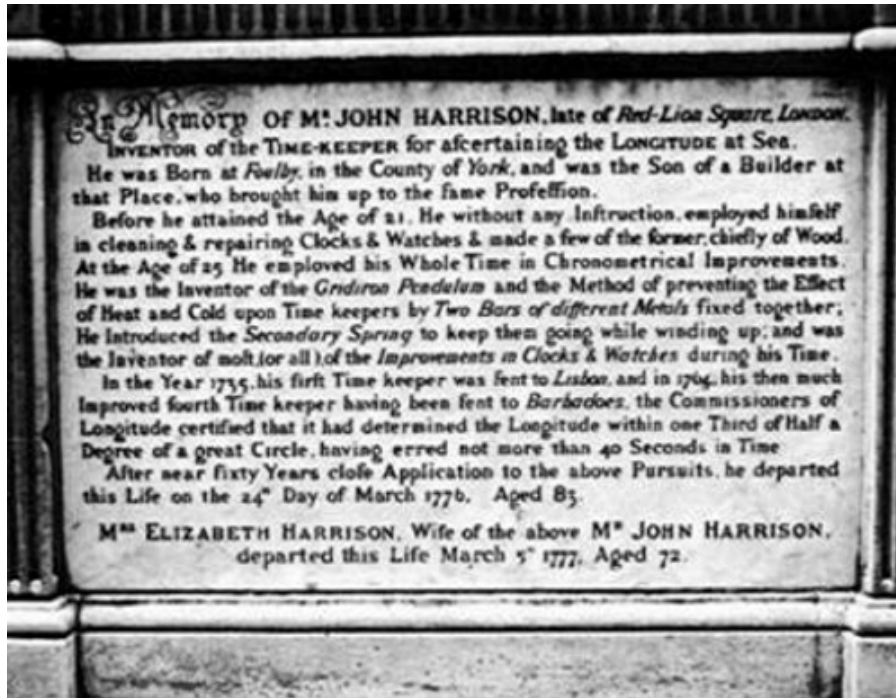 In Memory OF Mr. JOHN HARRISON, late of Red-Lion Square, LONDON.
INVENTOR of the TIME-KEEPER for aſcertaining the LONGITUDE at Sea.
He was Born at Foulby, in the County of York, and was the Son of a Builder at
that Place, who brought him up to the ſame Profeſſion.
Before he attained the Age of 21, He without any Inſtruction, employed himſelf
in cleaning & repairing Clocks & Watches & made a few of the former, chiefly of Wood.
At the Age of 25 He employed his Whole Time in Chronometrical Improvements.
He was the Inventor of the Gridiron Pendulum and the Method of preventing the Effect
of Heat and Cold upon Time keepers by Two Bars of different Metals fixed together;
He Introduced the Secondary Spring to keep them going while winding up; and was
the Inventor of moſt, (or all), of the Improvements in Clocks & Watches during his Time.
In the Year 1735, his firſt Time keeper was ſent to Lisbon, and in 1764, his then much
Improved fourth Time keeper having been ſent to Barbadoes, the Commissioners of
Longitude certified that it had determined the Longitude within one Third of Half a
Degree of a great Circle, having erred not more than 40 Seconds in Time
After near ſixty Years cloſe Application to the above Pursuits, he departed
this Life on the 24th Day of March 1776, Aged 83.
Mrs ELIZABETH HARRISON, Wife of the above Mr JOHN HARRISON,
departed this Life March 5th 1777, Aged 72.